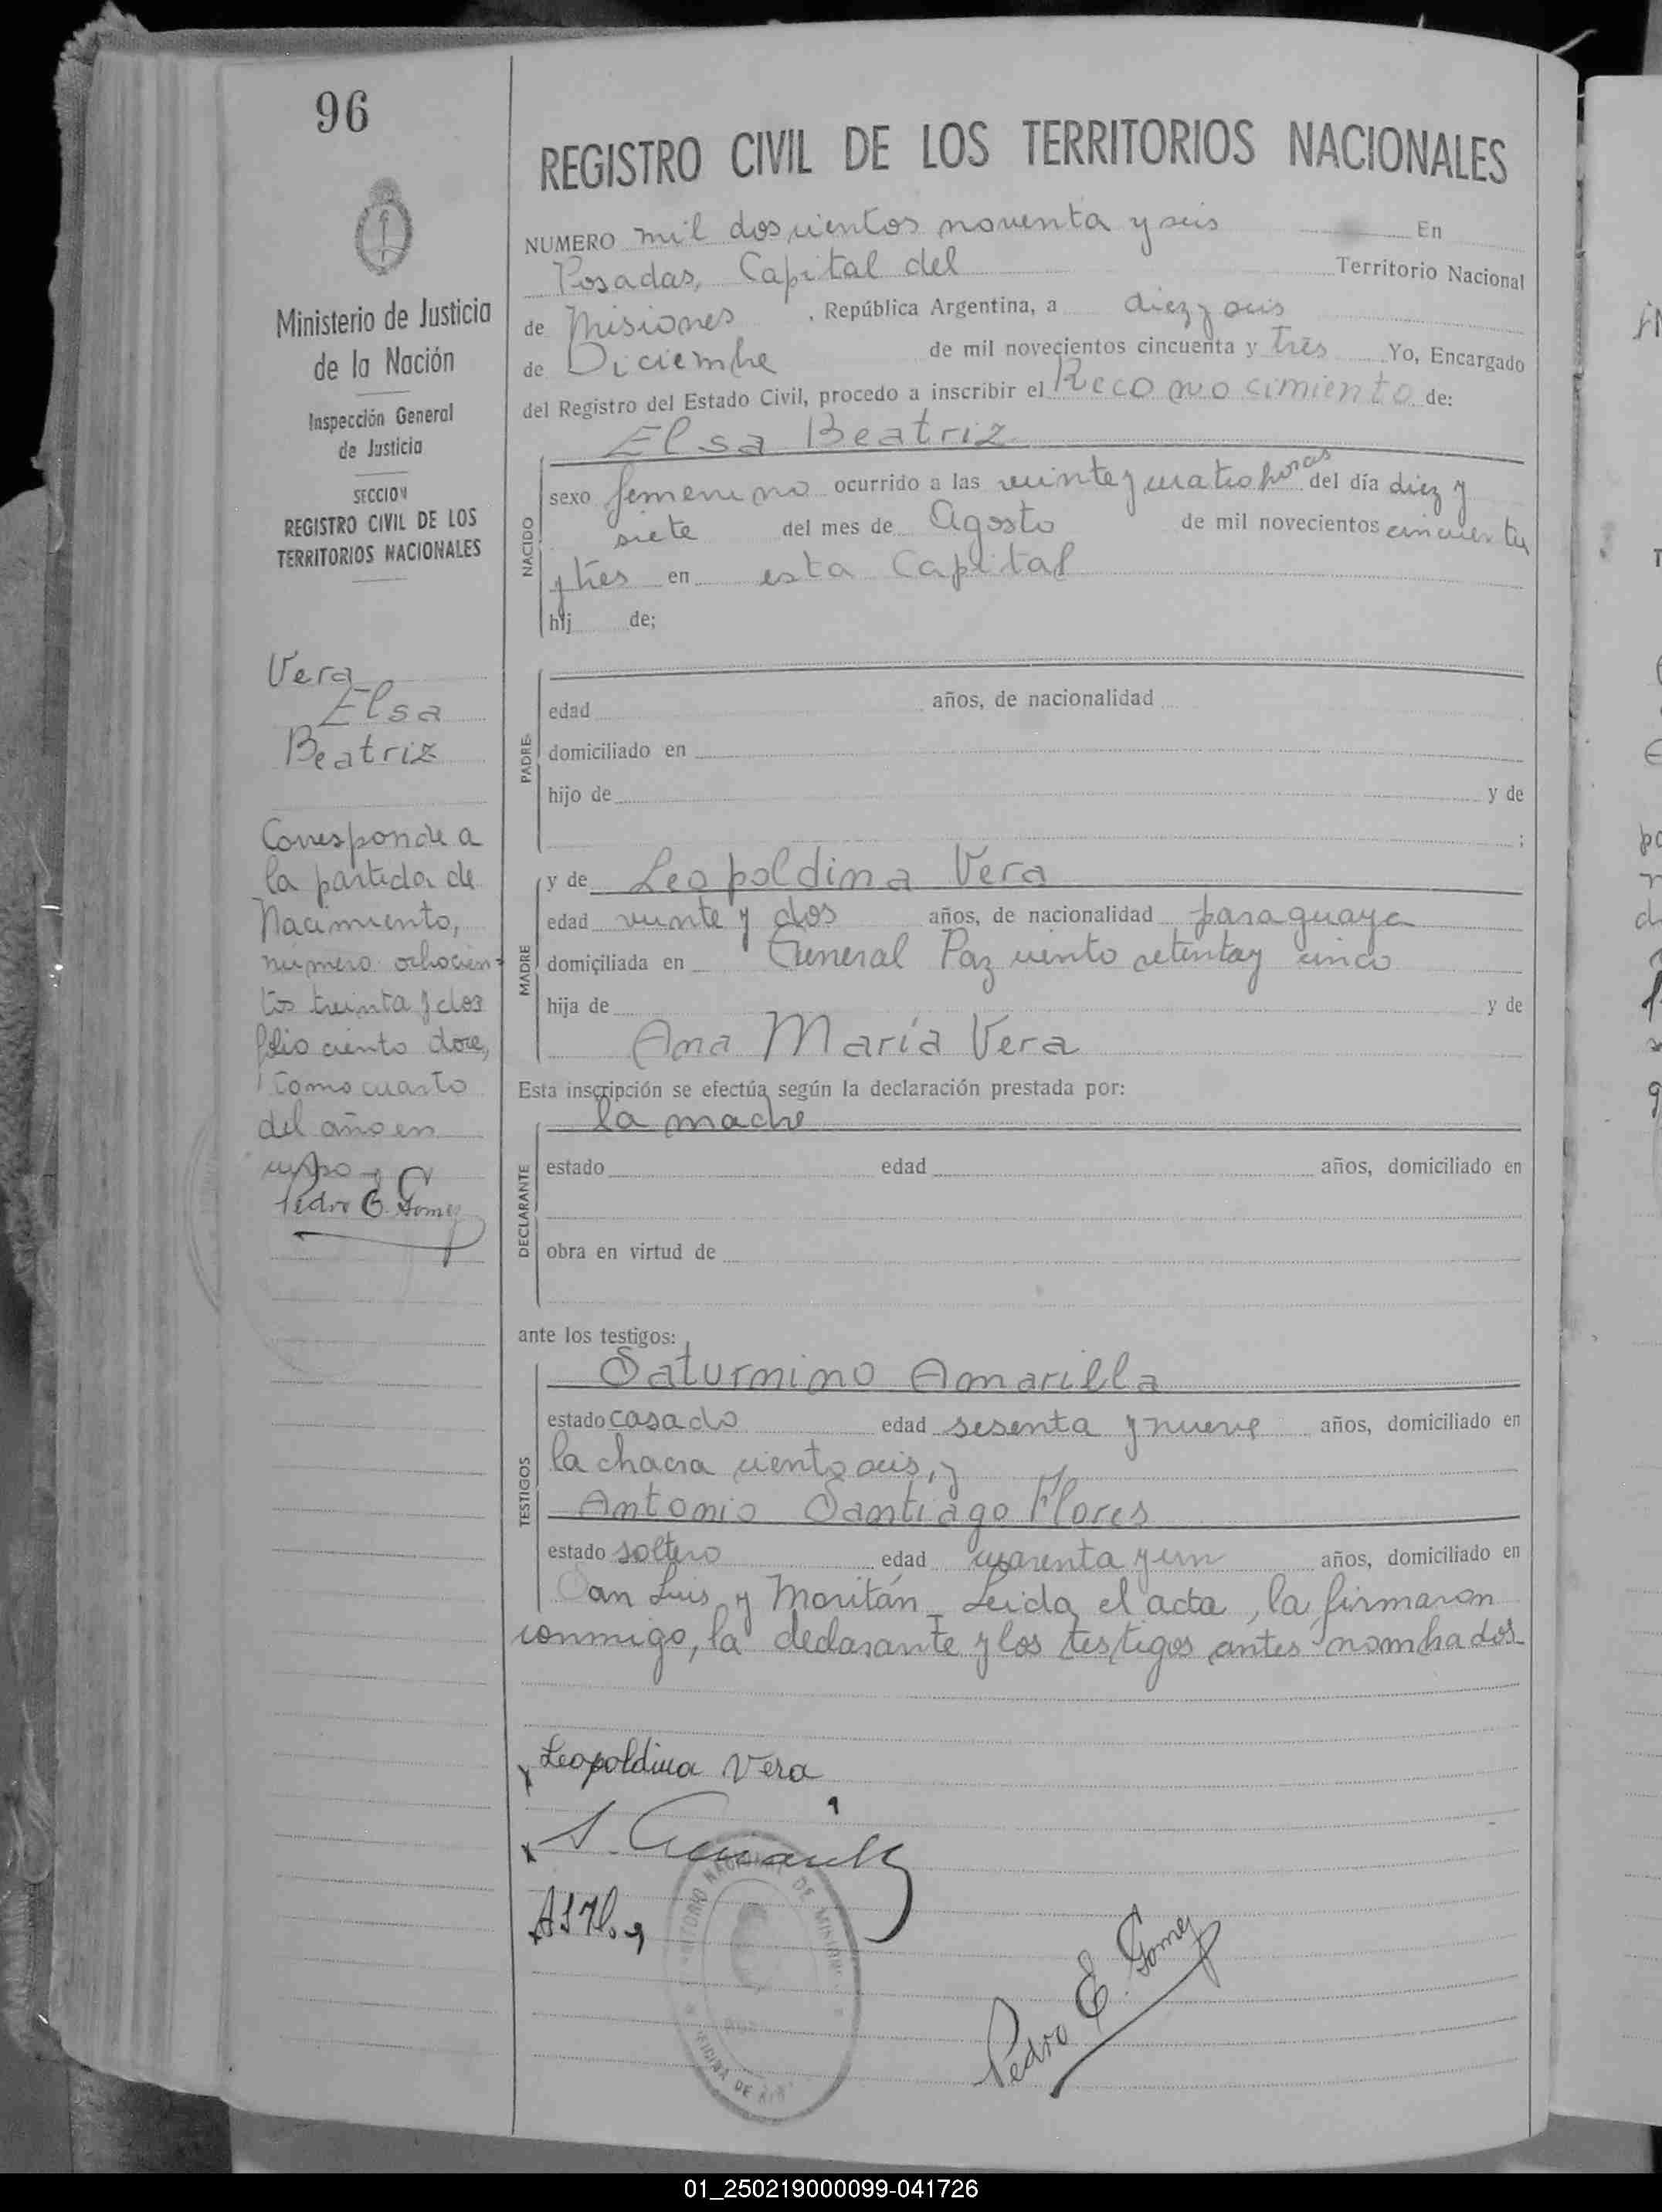 96
Ministerio de Justicia
de la Nación
Inspección General
de Justicia
SECCION
REGISTRO CIVIL DE LOS
TERRITORIOS NACIONALES
Vera
Elsa
Beatriz
Corresponde a
la partida de
Nacimiento,
numero ochocien-
tos treinta y dos
folio ciento doce,
tomo cuarto
del año en
curso
Pedro E. Gomez
REGISTRO CIVIL DE LOS TERRITORIOS NACIONALES
NUMERO mil doscientos noventa y seis En
Posadas, Capital del Territorio Nacional
de Misiones, República Argentina, a diez y seis
de Diciembre de mil novecientos cincuenta y tres Yo, Encargado
del Registro del Estado Civil, procedo a inscribir el Reconocimiento de:
Elsa Beatriz
NACIDO
sexo femenino ocurrido a las veinte y cuatro horas del día diez y
siete del mes de Agosto de mil novecientos cincuenta
y tres en esta Capital
hij de;
PADRE
edad años, de nacionalidad
domiciliado en
hijo de y de
;
MADRE
y de Leopoldina Vera
edad veinte y dos años, de nacionalidad paraguaya
domiciliada en General Paz ciento setenta y cinco
hija de y de
Ana María Vera
Esta inscripción se efectúa según la declaración prestada por:
la madre
DECLARANTE
estado edad años, domiciliado en
obra en virtud de
ante los testigos:
TESTIGOS
Saturnino Amarilla
estado casado edad sesenta y nueve años, domiciliado en
la chacra ciento seis, y
Antonio Santiago Flores
estado soltero edad cuarenta y un años, domiciliado en
San Luis y Moritán_ Leida el acta, la firmaron
conmigo, la declarante y los testigos antes nombrados
x Leopoldina Vera
x S. Amarilla
Pedro E. Gomez
NACIONAL DE MISIONES
01_250219000099-041726